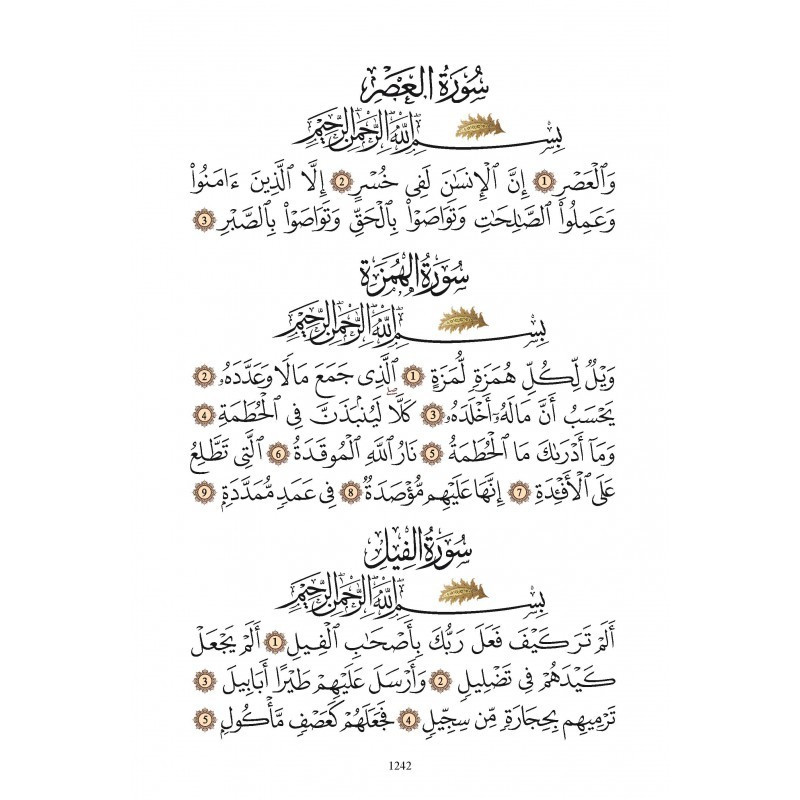 سُورَةُ العَصْرِ
بِسْمِ ٱللَّهِ ٱلرَّحْمَٰنِ ٱلرَّحِيمِ
وَٱلْعَصْرِ 1 إِنَّ ٱلْإِنسَٰنَ لَفِى خُسْرٍ 2 إِلَّا ٱلَّذِينَ ءَامَنُوا۟
وَعَمِلُوا۟ ٱلصَّٰلِحَٰتِ وَتَوَاصَوْا۟ بِٱلْحَقِّ وَتَوَاصَوْا۟ بِٱلصَّبْرِ 3
سُورَةُ الهُمَزَةِ
بِسْمِ ٱللَّهِ ٱلرَّحْمَٰنِ ٱلرَّحِيمِ
وَيْلٌ لِّكُلِّ هُمَزَةٍ لُّمَزَةٍ 1 ٱلَّذِى جَمَعَ مَالًا وَعَدَّدَهُۥ 2
يَحْسَبُ أَنَّ مَالَهُۥٓ أَخْلَدَهُۥ 3 كَلَّا ۖ لَيُنۢبَذَنَّ فِى ٱلْحُطَمَةِ 4
وَمَآ أَدْرَىٰكَ مَا ٱلْحُطَمَةُ 5 نَارُ ٱللَّهِ ٱلْمُوقَدَةُ 6 ٱلَّتِى تَطَّلِعُ
عَلَى ٱلْأَفْـِٔدَةِ 7 إِنَّهَا عَلَيْهِم مُّؤْصَدَةٌ 8 فِى عَمَدٍ مُّمَدَّدَةٍۭ 9
سُورَةُ الفِيلِ
بِسْمِ ٱللَّهِ ٱلرَّحْمَٰنِ ٱلرَّحِيمِ
أَلَمْ تَرَ كَيْفَ فَعَلَ رَبُّكَ بِأَصْحَٰبِ ٱلْفِيلِ 1 أَلَمْ يَجْعَلْ
كَيْدَهُمْ فِى تَضْلِيلٍ 2 وَأَرْسَلَ عَلَيْهِمْ طَيْرًا أَبَابِيلَ 3
تَرْمِيهِم بِحِجَارَةٍ مِّن سِجِّيلٍ 4 فَجَعَلَهُمْ كَعَصْفٍ مَّأْكُولٍۭ 5
1242